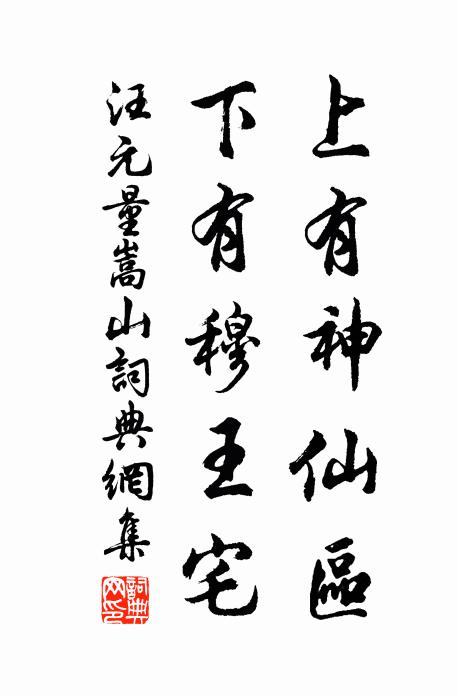 上有神仙區
下有穆王宅
汪元量嵩山詞典網集
詞典
网印